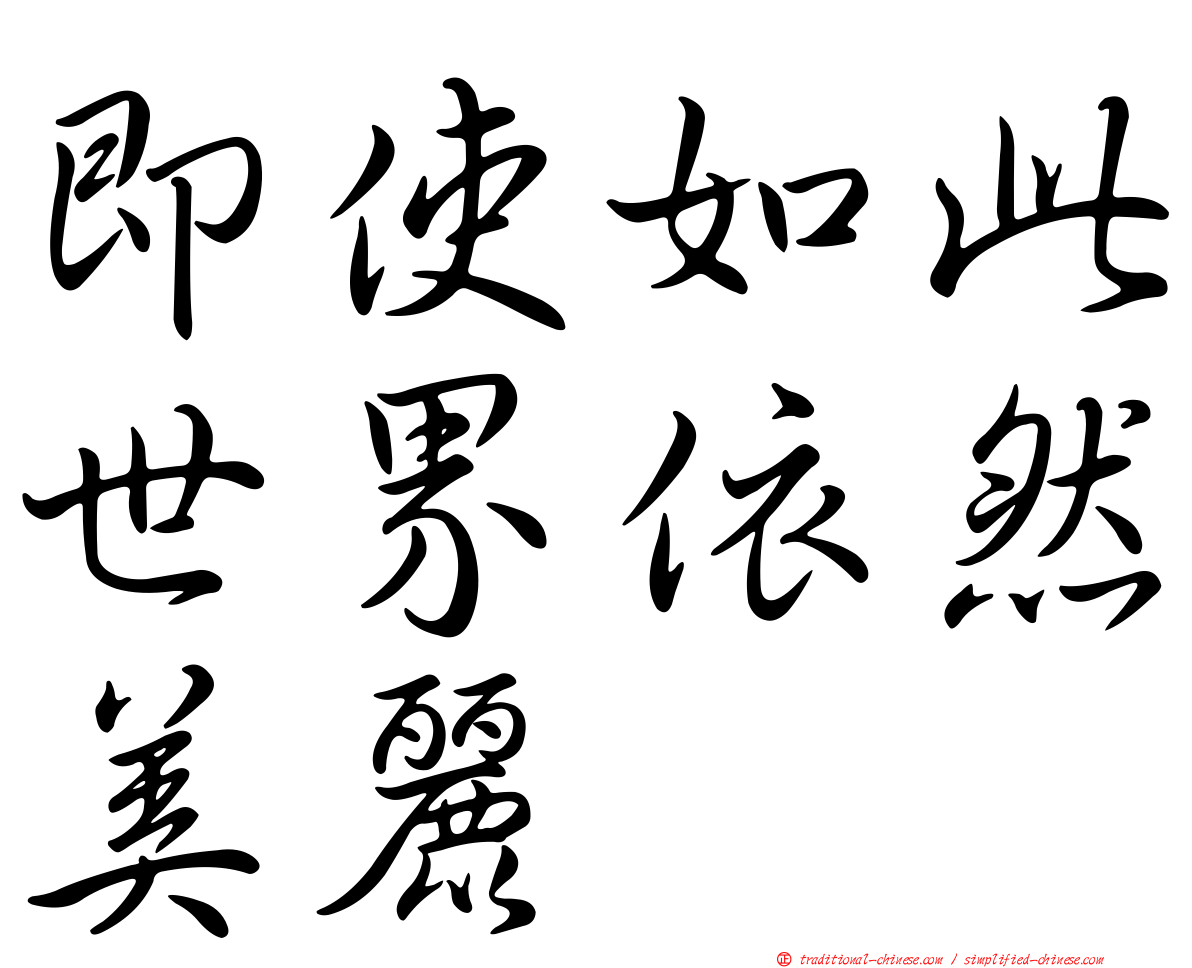 即使如此
世界依然
美麗
正 traditional-chinese.com / simplified-chinese.com